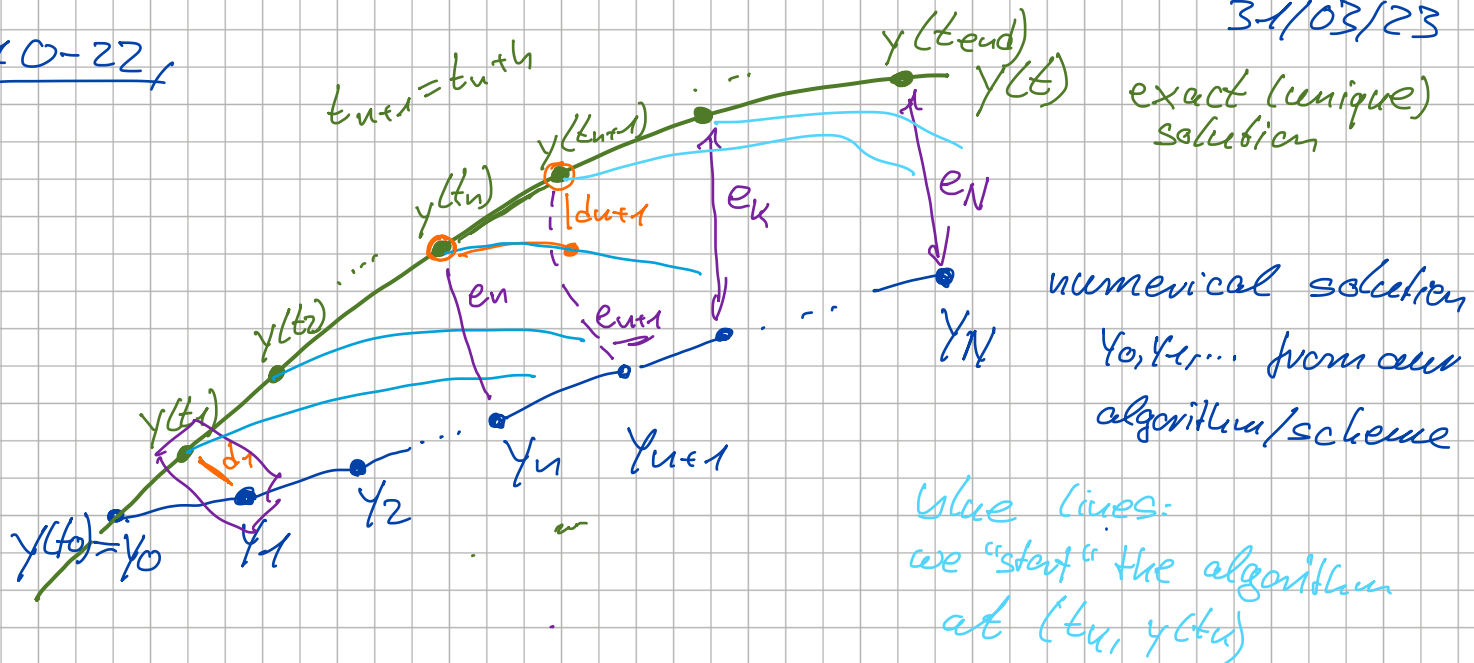 10-22,
31/03/23
t_{n+1} = t_n + h
y(tend)
y(t)
exact (unique)
solution
y(t_{n+1})
y(t_n)
d_{n+1}
e_K
e_N
e_n
e_{n+1}
y(t_2)
y(t_1)
d_1
y(t_0) = y_0
y_1
y_2
y_n
y_{n+1}
y_N
numerical solution
y_0, y_1, ... from our
algorithm/scheme
blue lines:
we "start" the algorithm
at (t_n, y(t_n)